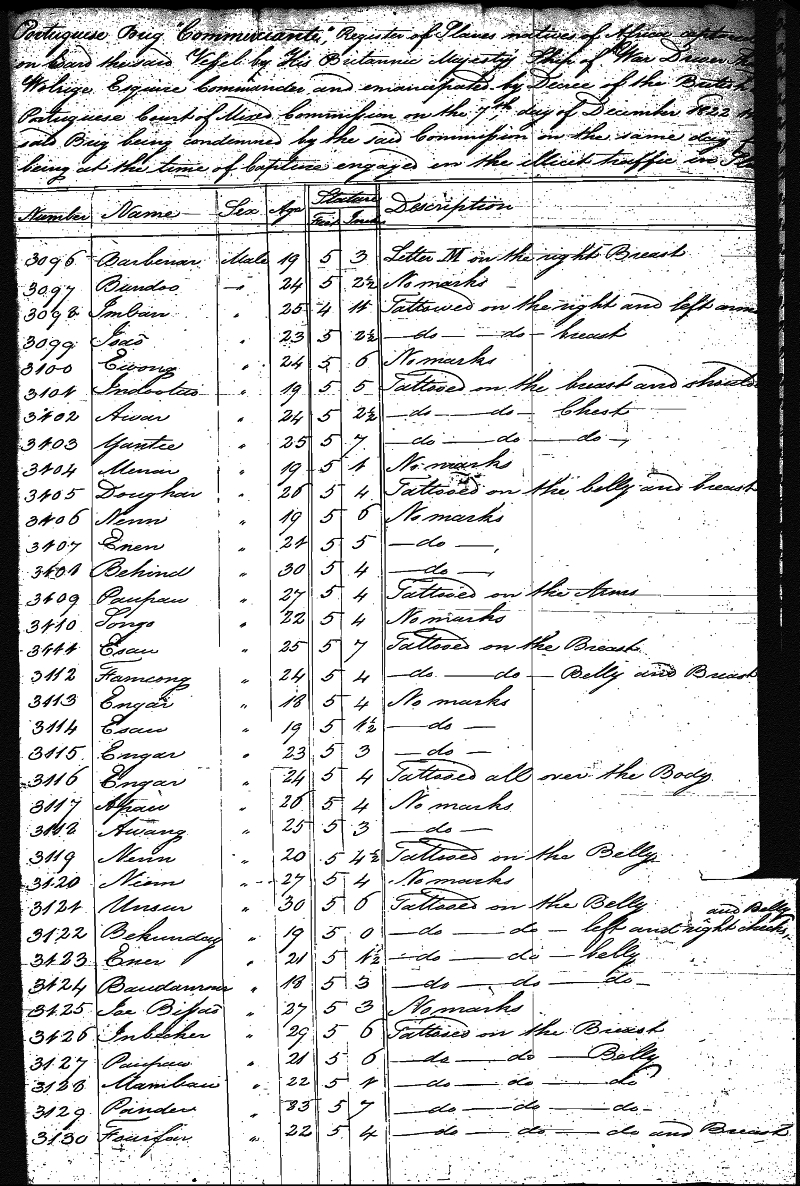 Portuguese Brig "Commerciante," Register of Slaves natives of Africa captured
on board the said Vessel by His Britannic Majesty's Ship of War Driver
Wolrige Esquire Commander and emancipated by Decree of the British
Portuguese Court of Mixed Commission on the 7th day of December 1822
said Brig being condemned by the said Commission on the same day
being at the time of Capture engaged in the illicit traffic in
Number Name Sex Age Stature Feet Inches Description
3096 Barbenar Male 19 5 3 Letter M on the right Breast
3097 Bundoo " 24 5 2½ No marks
3098 Imban " 25 4 11 Tattowed on the right and left arms
3099 Joaõ " 23 5 2½ —do— —do— breast
3100 Ewong " 24 5 6 No marks
3101 Indootas " 19 5 5 Tattooed on the breast and
3102 Awar " 24 5 2½ —do— —do— Chest
3103 Yantie " 25 5 7 —do— —do— —do—
3104 Menar " 19 5 1 No marks
3105 Doughar " 26 5 4 Tattooed on the belly and breast
3106 Nenn " 19 5 6 No marks
3107 Enen " 21 5 5 —do—
3108 Behind " 30 5 4 —do—
3109 Paupau " 27 5 4 Tattooed on the Arms
3110 Songo " 22 5 4 No marks
3111 Esau " 25 5 7 Tattooed on the Breast
3112 Famcong " 24 5 4 —do— —do— Belly and Breast
3113 Engar " 18 5 4 No marks
3114 Esau " 19 5 1½ —do—
3115 Engar " 23 5 3 —do—
3116 Engar " 24 5 4 Tattooed all over the Body
3117 " 26 5 4 No marks
3118 Awang " 25 5 3 —do—
3119 Nenn " 20 5 4½ Tattooed on the Belly
3120 Niem " 27 5 4 No marks
3121 Unsur " 30 5 6 Tattooed on the Belly
3122 Bekunday " 19 5 0 —do— —do— left and right cheeks, and Belly
3123 Ener " 21 5 1½ —do— —do— belly
3124 " 18 5 3 —do— —do— —do—
3125 Joe Bissaõ " 27 5 3 No marks
3126 Inbooker " 29 5 6 Tattooed on the Breast
3127 Paupau " 21 5 6 —do— —do— Belly
3128 Mambau " 22 5 1 —do— —do— —do
3129 Pander " 33 5 7 —do— —do— —do—
3130 Fourfar " 22 5 4 —do— —do— —do and Breast